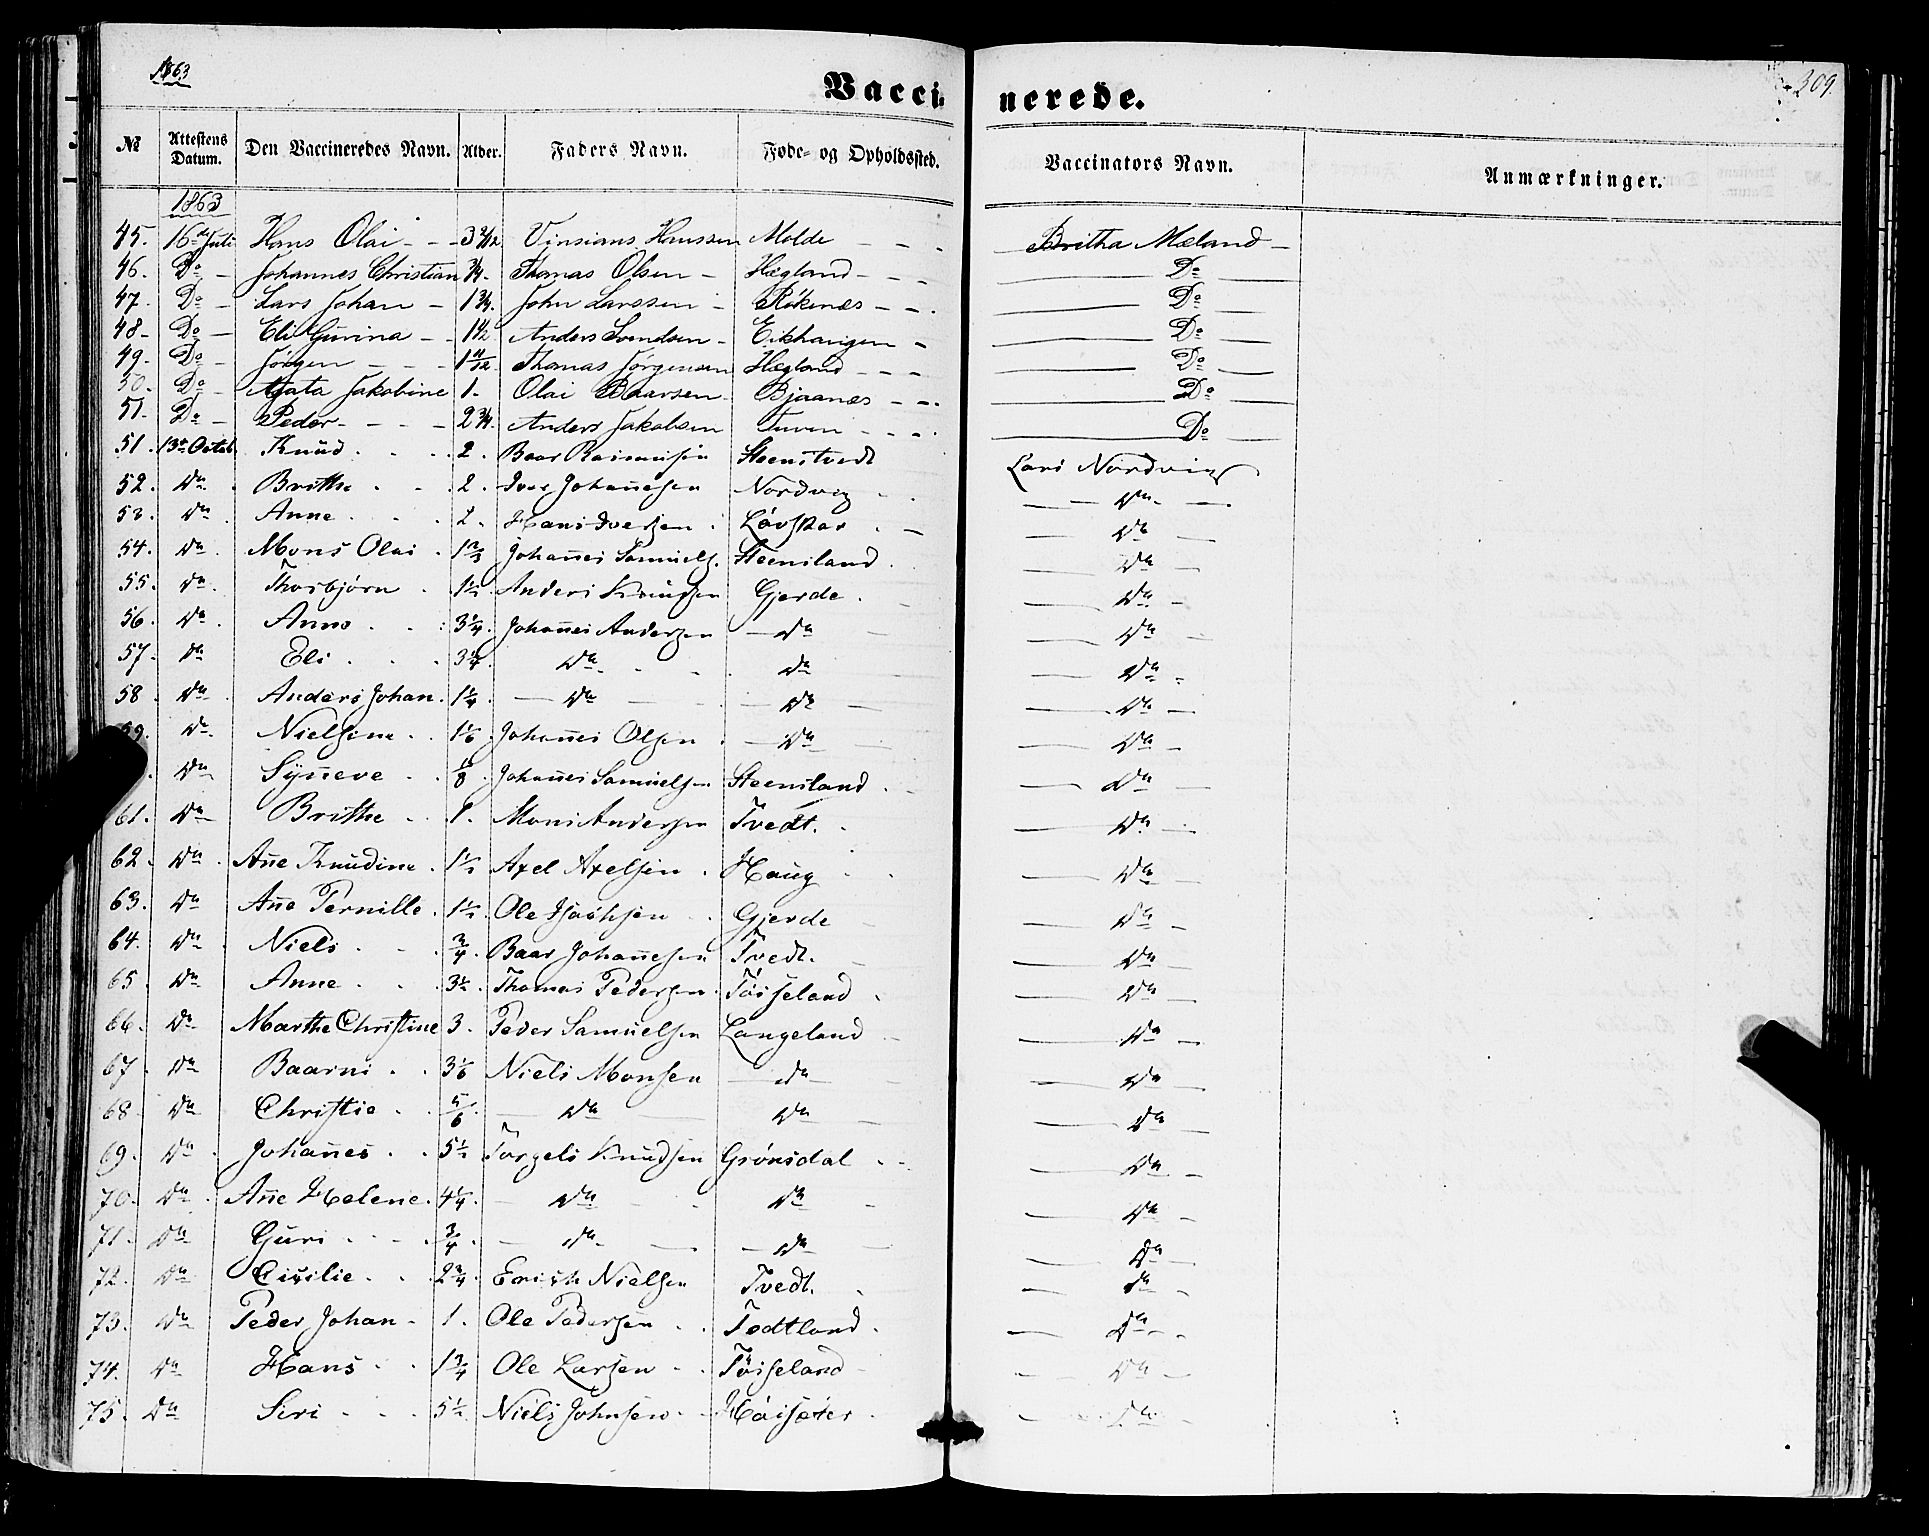 1863
309.
Vaccinerede.
№ Attestens Datum. Den Vaccineredes Navn. Alder. Faders Navn. Føde- og Opholdssted. Vaccinators Navn. Anmærkninger.
1863
45. 16de Juli Hans Olai 3 2/12 Vinsians Hanssen Molde Britha Mæland
46. Do Johannes Christian 3/4 Thomas Olsen Hægland Do
47. Do Lars Johan 1 3/4 John Larssen Røkenæs Do
48. Do Eli Gurina 1 1/2 Anders Svendsen Eikhaugen Do
49. Do Jørgen 1 11/12 Thomas Jørgensen Hægland Do
50. Do Agata Jakobine 1. Olai Baarsen Bjaanæs Do
51. Do Peder 2 3/4 Anders Jakobsen Tuven Do
51. 13de Octob. Knud 2. Baar Rasmusen Steenstvedt Lars Nordvig
52. Do Brithe 2. Iver Johanesen Nordvig Do
53. Do Anne 2. Hans Iversen Løvskar Do
54. Do Mons Olai 1 2/3 Johanes Samuels. Steensland Do
55. Do Thorbjørn 1 1/2 Anders Knudsen Gjerde Do
56. Do Anne 3 1/4 Johanes Andersen Do Do
57. Do Eli 3 1/4 Do Do Do
58. Do Anders Johan 1 1/4 Do Do Do
59. Do Nielsine 1 1/6 Johanes Olsen Do Do
Do Syneve Johanes Samuelsen Steensland Do
61. Do Brithe 1. Mons Andersen Tvedt. Do
62. Do Ane Knudine 1 1/2 Axel Axelsen Haug Do
63. Do Ane Pernille 1 1/2 Ole Isachsen Gjerde Do
64. Do Niels 3/4 Baar Johanesen Tvedt. Do
65. Do Anne 3 1/2 Thomas Pedersen Tøisseland Do
66. Do Marthe Christine 3. Peder Samuelsen Langeland Do
67. Do Baarni 3 1/6 Niels Monsen Do Do
68. Do Christie 5/6 Do Do Do
69. Do Johanes 5 1/2 Torgels Knudsen Grønsdal Do
70. Do Ane Helene 4 1/4 Do Do Do
71. Do Guri 3/4 Do Do Do
72. Do Cisilie 2 3/4 Erich Nielsen Tvedt. Do
73. Do Peder Johan 1. Ole Pedersen Todtland Do
74. Do Hans 1 3/4 Ole Larsen Tøisseland Do
75. Do Siri 5 1/2 Niels Johnsen Høisæter Do